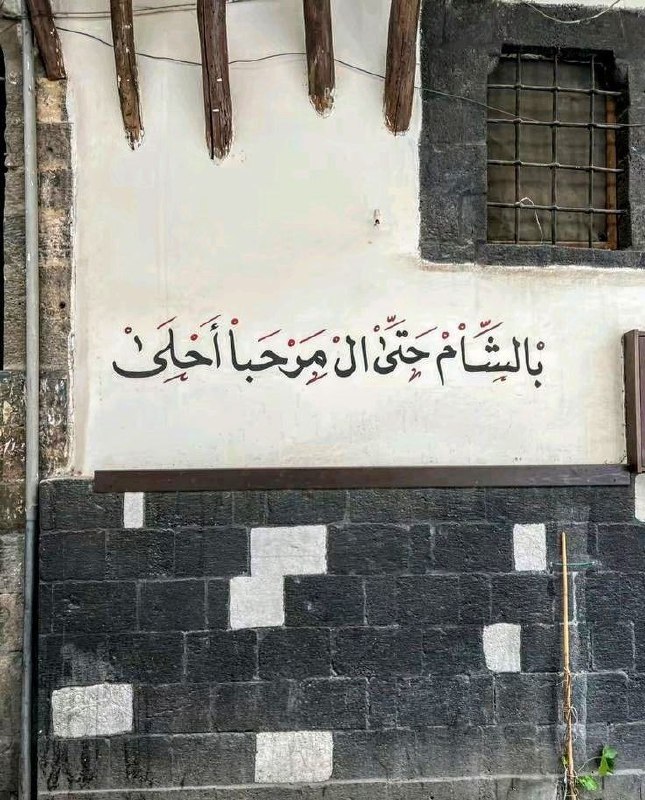 بْالشَّاْمْ حَتَّىْ الْ مَرْحَباْ أَحْلَىْ